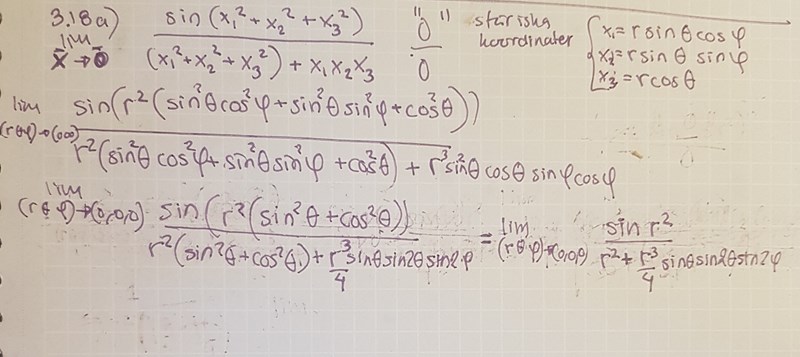 3.18a) lim x̄→0̄ sin(x₁²+x₂²+x₃²) / ((x₁²+x₂²+x₃²)+x₁x₂x₃) "0/0" sfäriska koordinater { x₁=r sinθ cosφ
x₂=r sinθ sinφ
x₃=r cosθ
lim (r θ φ)→(0,0,0) sin(r²(sin²θcos²φ+sin²θ sin²φ+cos²θ)) / (r²(sin²θ cos²φ+sin²θ sin²φ+cos²θ) + r³sin²θ cosθ sinφ cosφ)
lim (r θ φ)→(0,0,0) sin(r²(sin²θ+cos²θ)) / (r²(sin²θ+cos²θ)+ r³/4 sinθ sin2θ sin2φ) = lim (r θ φ)→(0,0,0) sin r² / (r² + r³/4 sinθ sin2θ sin2φ)